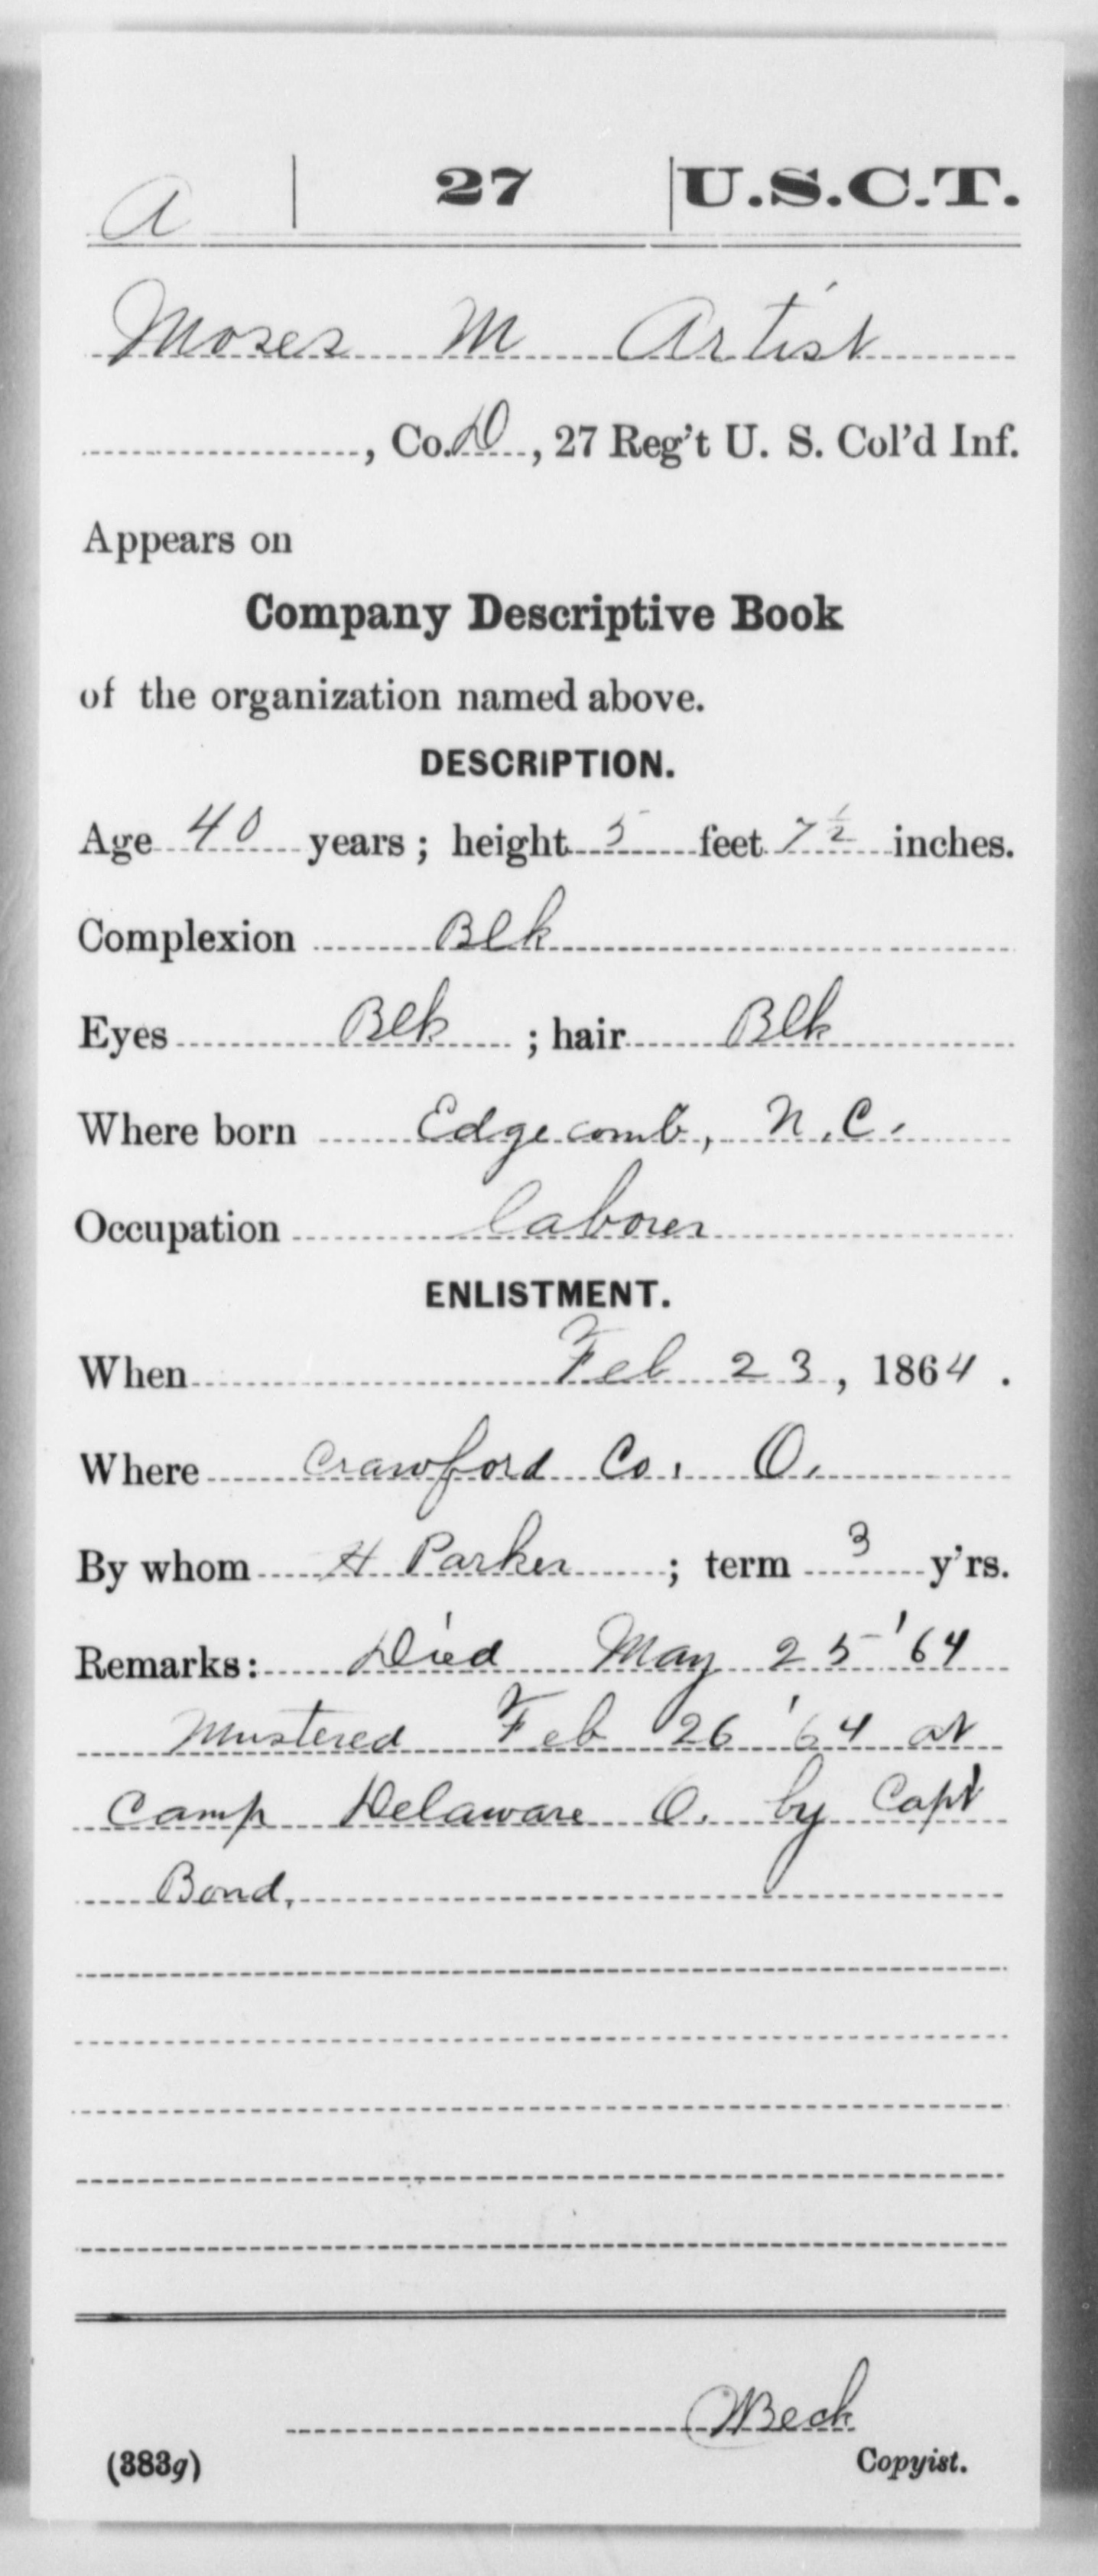 A | 27 | U.S.C.T.
Moses M Artist
, Co. D, 27 Reg't U. S. Col'd Inf.
Appears on
Company Descriptive Book
of the organization named above.
DESCRIPTION.
Age 40 years; height 5 feet 7½ inches.
Complexion Blk
Eyes Blk; hair Blk
Where born Edgecomb, N.C.
Occupation laborer
ENLISTMENT.
When Feb 23, 1864.
Where Crawford Co. O.
By whom H Parker; term 3 y'rs.
Remarks: Died May 25 '64
Mustered Feb 26 '64 at
Camp Delaware O. by Capt
Bond,
Beck
(383g) Copyist.